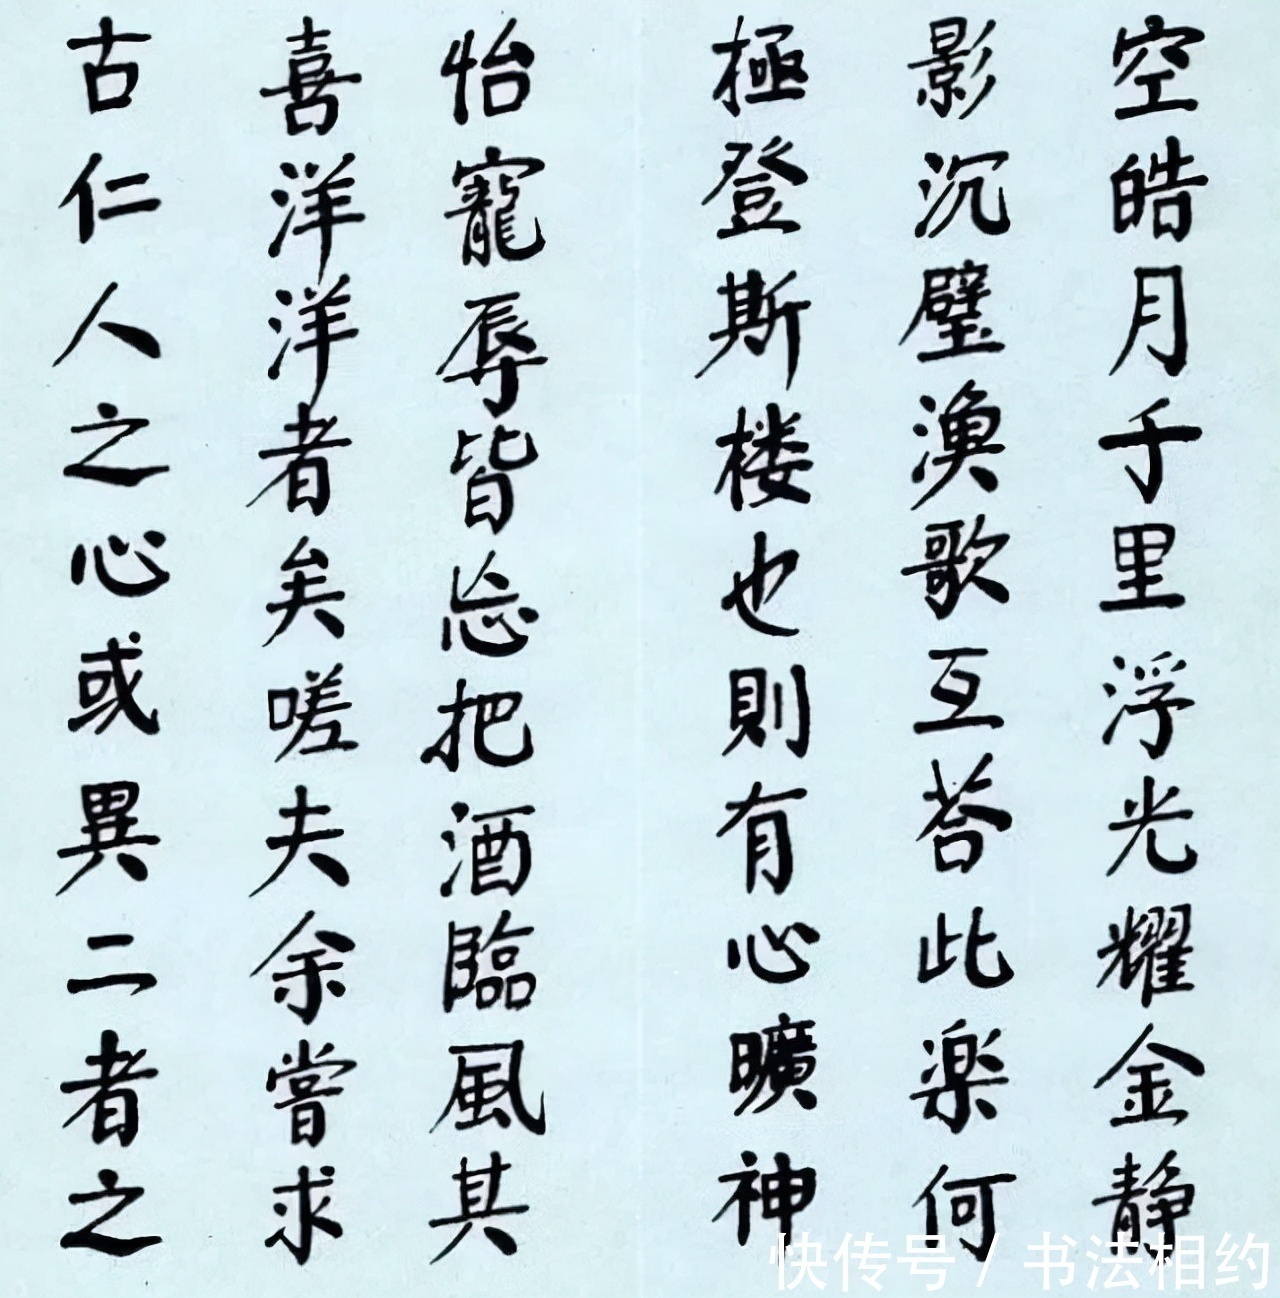 空皓月千里浮光耀金静
影沉璧漁歌互荅此楽何
極登斯楼也則有心曠神
怡寵辱皆忘把酒臨風其
喜洋洋者矣嗟夫余嘗求
古仁人之心或異二者之
快传号 / 书法相约